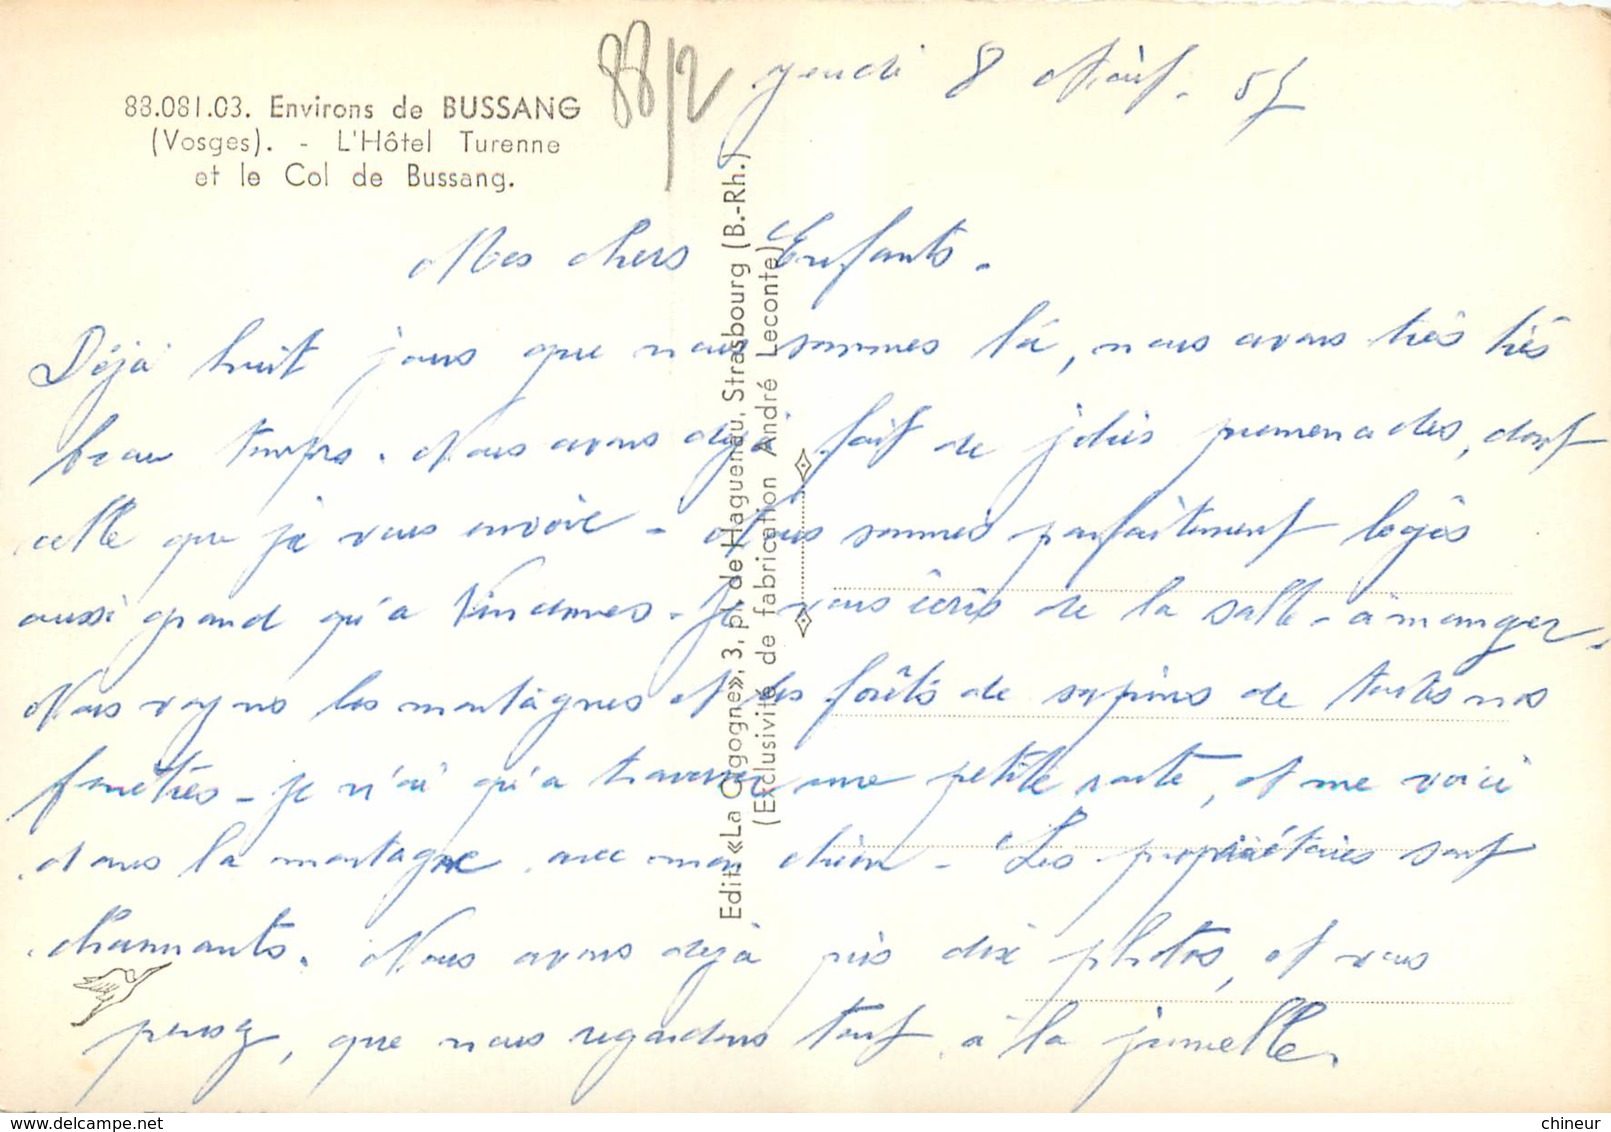 88/2
jeudi 8 Août. 57
88.081.03. Environs de BUSSANG
(Vosges). - L'Hôtel Turenne
et le Col de Bussang.
Mes chers Enfants.
Déjà huit jours que nous sommes là, nous avons très très
beau temps. Nous avons déjà fait de jolies promenades, dont
celle que je vous envoie - Nous sommes parfaitement logés
aussi grand qu'à - Je vous écris de la salle-à manger,
Nous voyons les montagnes et les forêts de sapins de toutes nos
fenêtres - je n'ai qu'à traverser une petite route, et me voici
dans la montagne avec mon chien - Les propriétaires sont
charmants. Nous avons déjà pris dix photos, et vous
pensez, que nous regardons tout à la jumelle.
Edit. «La Cigogne», 3, pl. de Haguenau, Strasbourg (B.-Rh.)
(Exclusivité de fabrication André Leconte)
delcampe.net
chineur